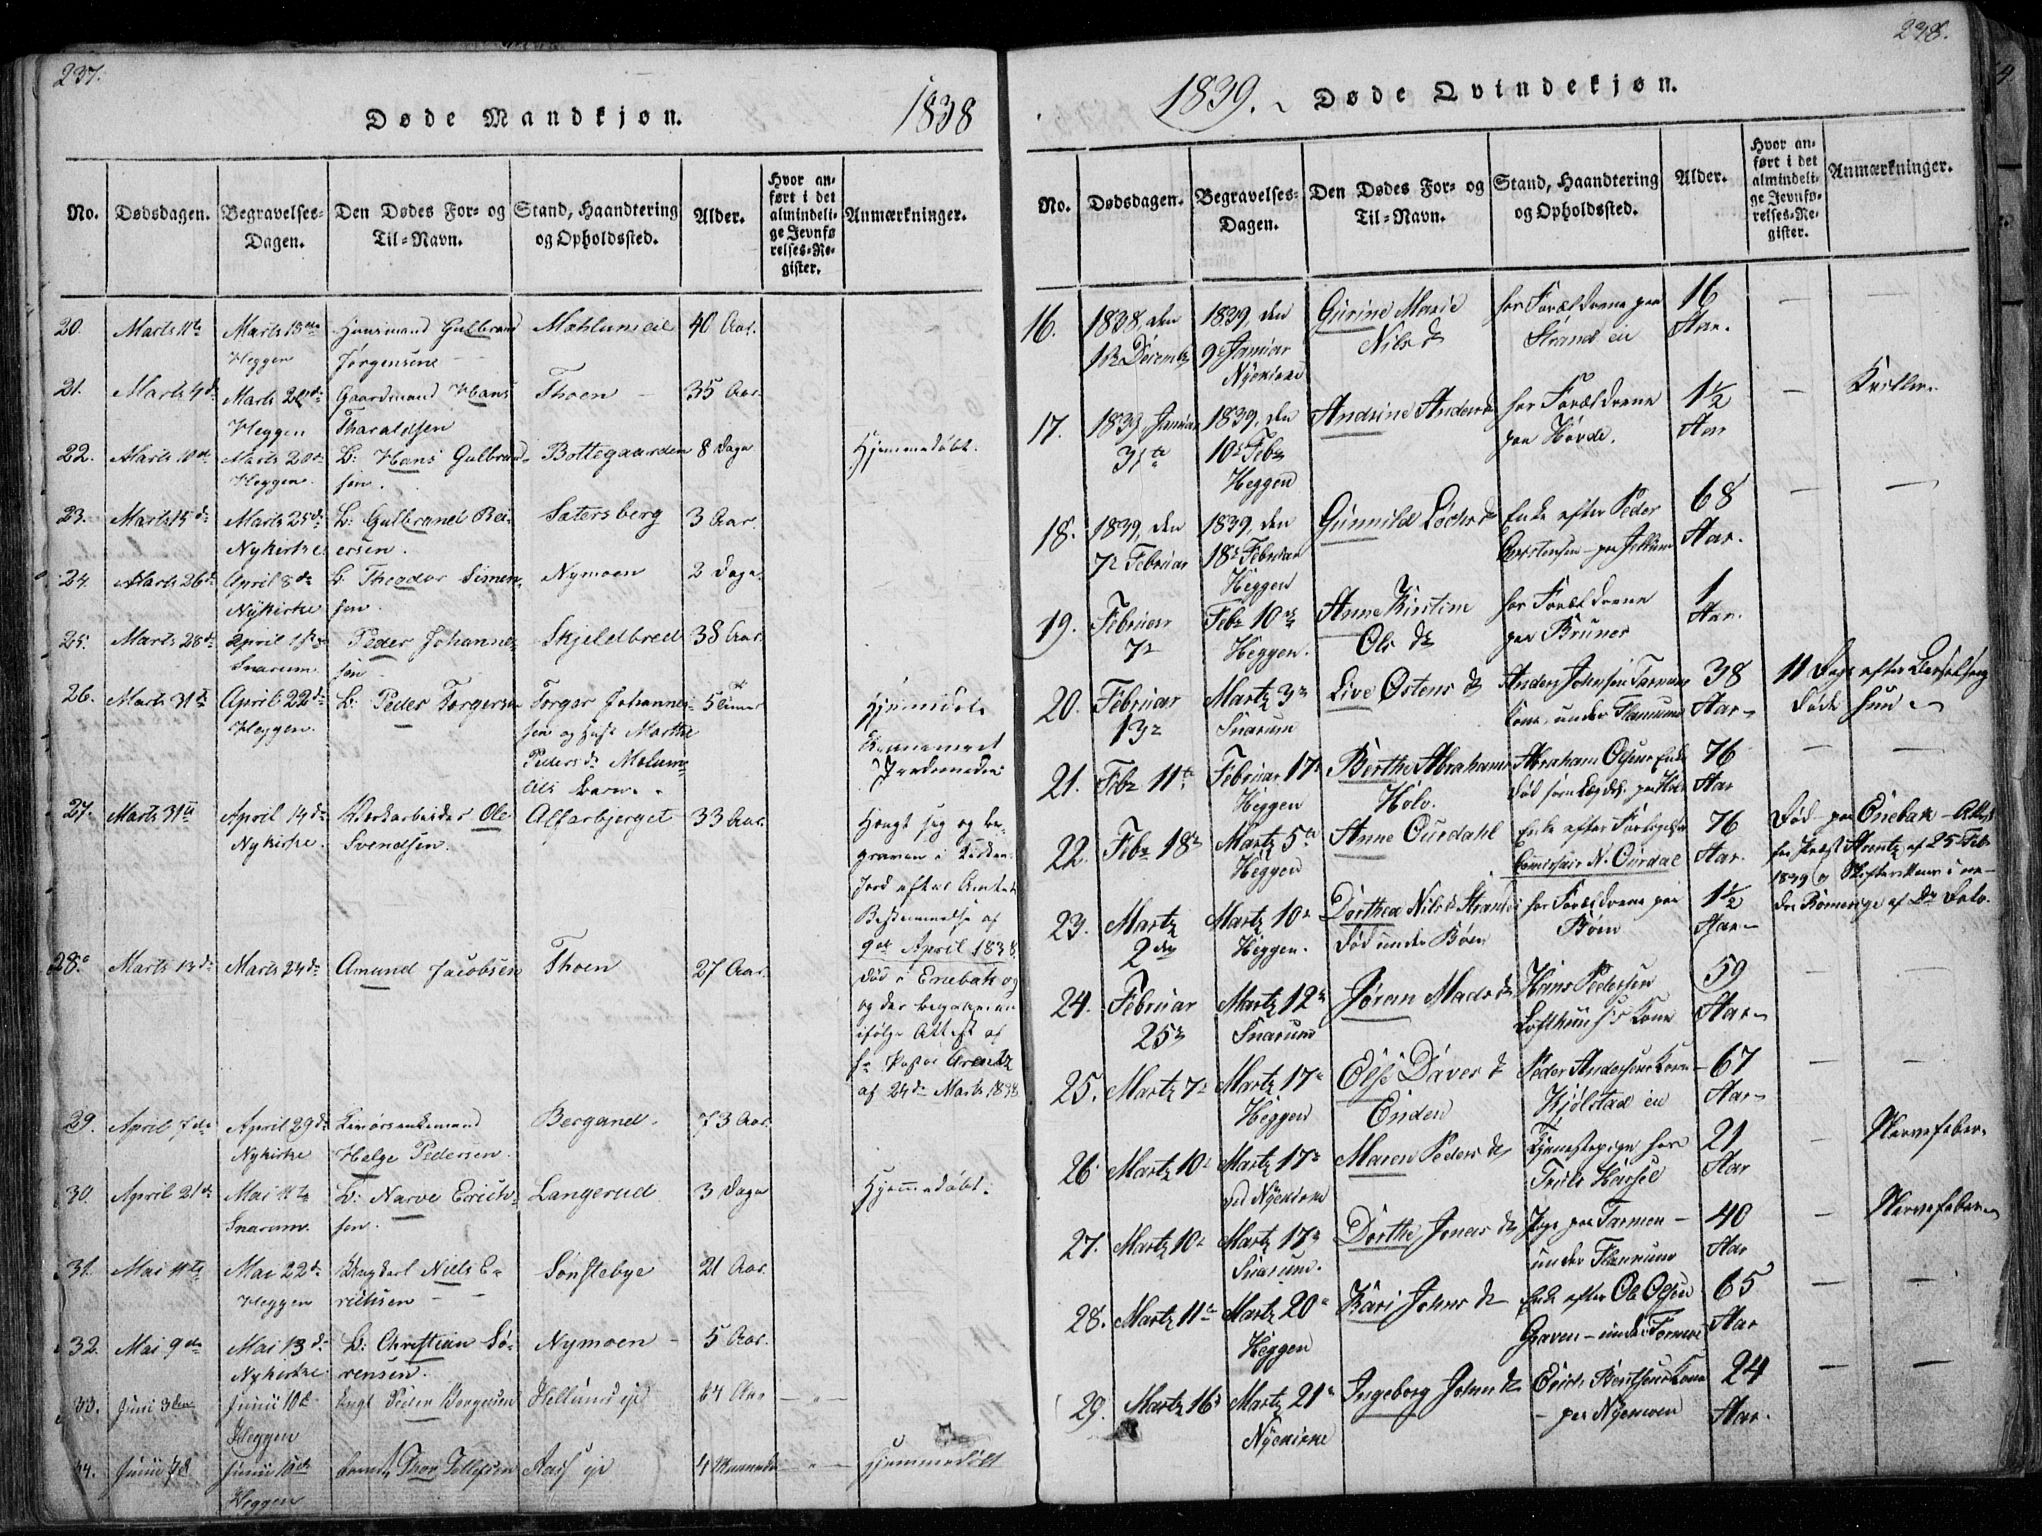 237.
Døde Mandkjøn.
1838
No.
Dødsdagen.
Begravelses-
Dagen.
Den Dødes For- og
Til-Navn.
Stand, Haandtering
og Opholdssted.
Alder.
Hvor an-
ført i det
almindeli-
ge Jevnfø
relses-Re-
gister.
Anmærkninger.
20.
Marts 11te
Marts 18
Heggen
Huusmand Gulbrand
Jørgensene
Mæhlumeie
40 Aar.
21.
Marts 4de
Marts
Heggen
Gaardmand Hans
Tharaldsen
Thoen
35 Aar.
22.
Marts
Marts 20de
Heggen
B: Hans Gulbrand-
sen.
Bottegaarden
8 Dage
Hjemmedøbt.
23.
Marts 15de
Marts 25de
Nykirke
B: Gulbrand Rei-
ersen.
Sætersberg
3 Aar.
24.
Marts 26de
April 8de
Nykirke
B: Theodor Simen-
sen.
Nymoen
2 Dage.
25.
Marts 28de
April
Snarum.
Peder Johanne-
sen
Skjeldbred
38 Aar.
26.
Marts 31te
April 22de
Heggen.
B: Peder Torgersen
Torger Johanne-
sen og Marthe
Pedersd. Melum-
eie Barn.
5 Timer
Hjemmedøbt
27.
Marts 31te
April 14de
Nykirke.
Værkarbeider Ole
Svendsen.
Alfarbjerget
33 Aar.
Hængt sig og be-
graven i
Jord efter Amtets
Bestemmelse af
9de April 1838
28.
Marts 13de
Marts 24de
Amund Jacobsen
Thoen
27 Aar.
død i Enebak og
og der begraven
ifølge Attest af
Hr Pastor Arentz
af 24de Marts 1838
29.
April 7de
April 29de
Nykirke
Helge Pedersen.
Bergand.
73 Aar.
30.
April 21de
Mai 11te
Snarum.
B: Narve Erich-
sen.
Langerud
3 Dage
Hjemmedøbt.
31.
Mai 11te
Mai 22de
Heggen
Ungkarl Niels E-
richsen
Sønstebye
21 Aar.
32.
Mai 9de
Mai 13de
Nykirke
B: Christian Sø-
rensen.
Nymoen
5 Aar.
33.
Junii
Junii 10de
Heggen
Ungk Peder Borgersen
64 Aar
34.
Junii
Junii
Heggen
Thor Tollefsen
4 Maaneder
Hjemmedøbt
238.
1839.
Døde Qvindekjøn.
No.
Dødsdagen.
Begravelses-
Dagen.
Den Dødes For- og
Til-Navn.
Stand, Haandtering
og Opholdssted.
Alder.
Hvor an-
ført i det
almindeli-
ge Jevnfø-
relses-Re-
gister.
Anmærkninger.
16.
1838, den
Decemb.
1839, den
9de Januar
Nyekirke
Gurine Marie
Nilsd.
hos Forældrene paa
Strand eie
16
Aar.
17.
1839, Januar
31te
1839, den
10de Febr
Heggen
Andrine Andersd.
hos Forældrene
paa Hovde.
1½
Aar
18.
1839, den
7de Februar
1839, den
18de Februar
Heggen
Gunnild
Enke efter Peder
68
Aar.
19.
Februar
7de
Febr 10de
Heggen.
Anne Kirstine
Olsd.
hos Forældrene
paa Bruner
1
Aar.
20.
Februar
13de
Martz 3de
Snarum
Live Østensd.
Anders Johnsen
Kone, under
38
Aar
11 Dage efter Barselseng
døde hun
21.
Febr 11te
Februar 17de
Heggen
Berthe Abrahams
Holv.
Abraham Olsens Enke
76
Aar
22.
Febr 18de
Martz 5te
Heggen
Anne Ourdahl
Enke efter
N. Ourdal
76
Aar.
Død paa Enebak – Attest
fra Præst Arentz af 25 Feb
1839
23.
Martz
2den
Martz 10de
Heggen.
Dorthea Nilsd.
død under Bøen
hos Forældrene paa
Bøen
1½
Aar
24.
Februar
25de
Martz 12te
Snarum
Jøran Madsd.
Hans Pedersen
Lofthuus's Kone
59
Aar
25.
Martz 7de
Martz 17de
Heggen
Else Daversd.
Enden
Peder Andersens Kone
Kjølstad eie
67
Aar
26.
Martz 10de
Martz 17de
ved Nyekirke
Maren Pedersd.
Tjenestepige hos
21
Aar
Nervefeber
27.
Martz 10de
Martz 17de
Snarum.
Dorthe Jonasd.
Pige paa
under
40
Aar
Nervefeber
28.
Martz 11te
Martz 20de
Heggen
Kari Johnsd.
Enke efter Ole Olsen
Graven – under
65
Aar
29.
Martz 16de
Martz 21de
Nyekirke
Ingeborg Johnsd.
Erich Bentsens Kone
paa Nyemoen
24
Aar.